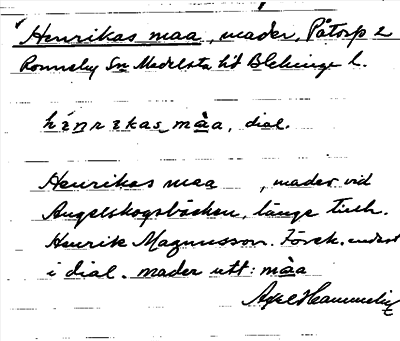 Henrikas maa, mader, Påtorp 2
Ronneby Sn Medelsta hd Blekinge l.
hinrikas màa, dial.
Henrikas maa , mader vid
Angelskogsbäcken, länge tillh.
Henrik Magnusson. Förek. endast
i dial. mader utt: màa
Axel